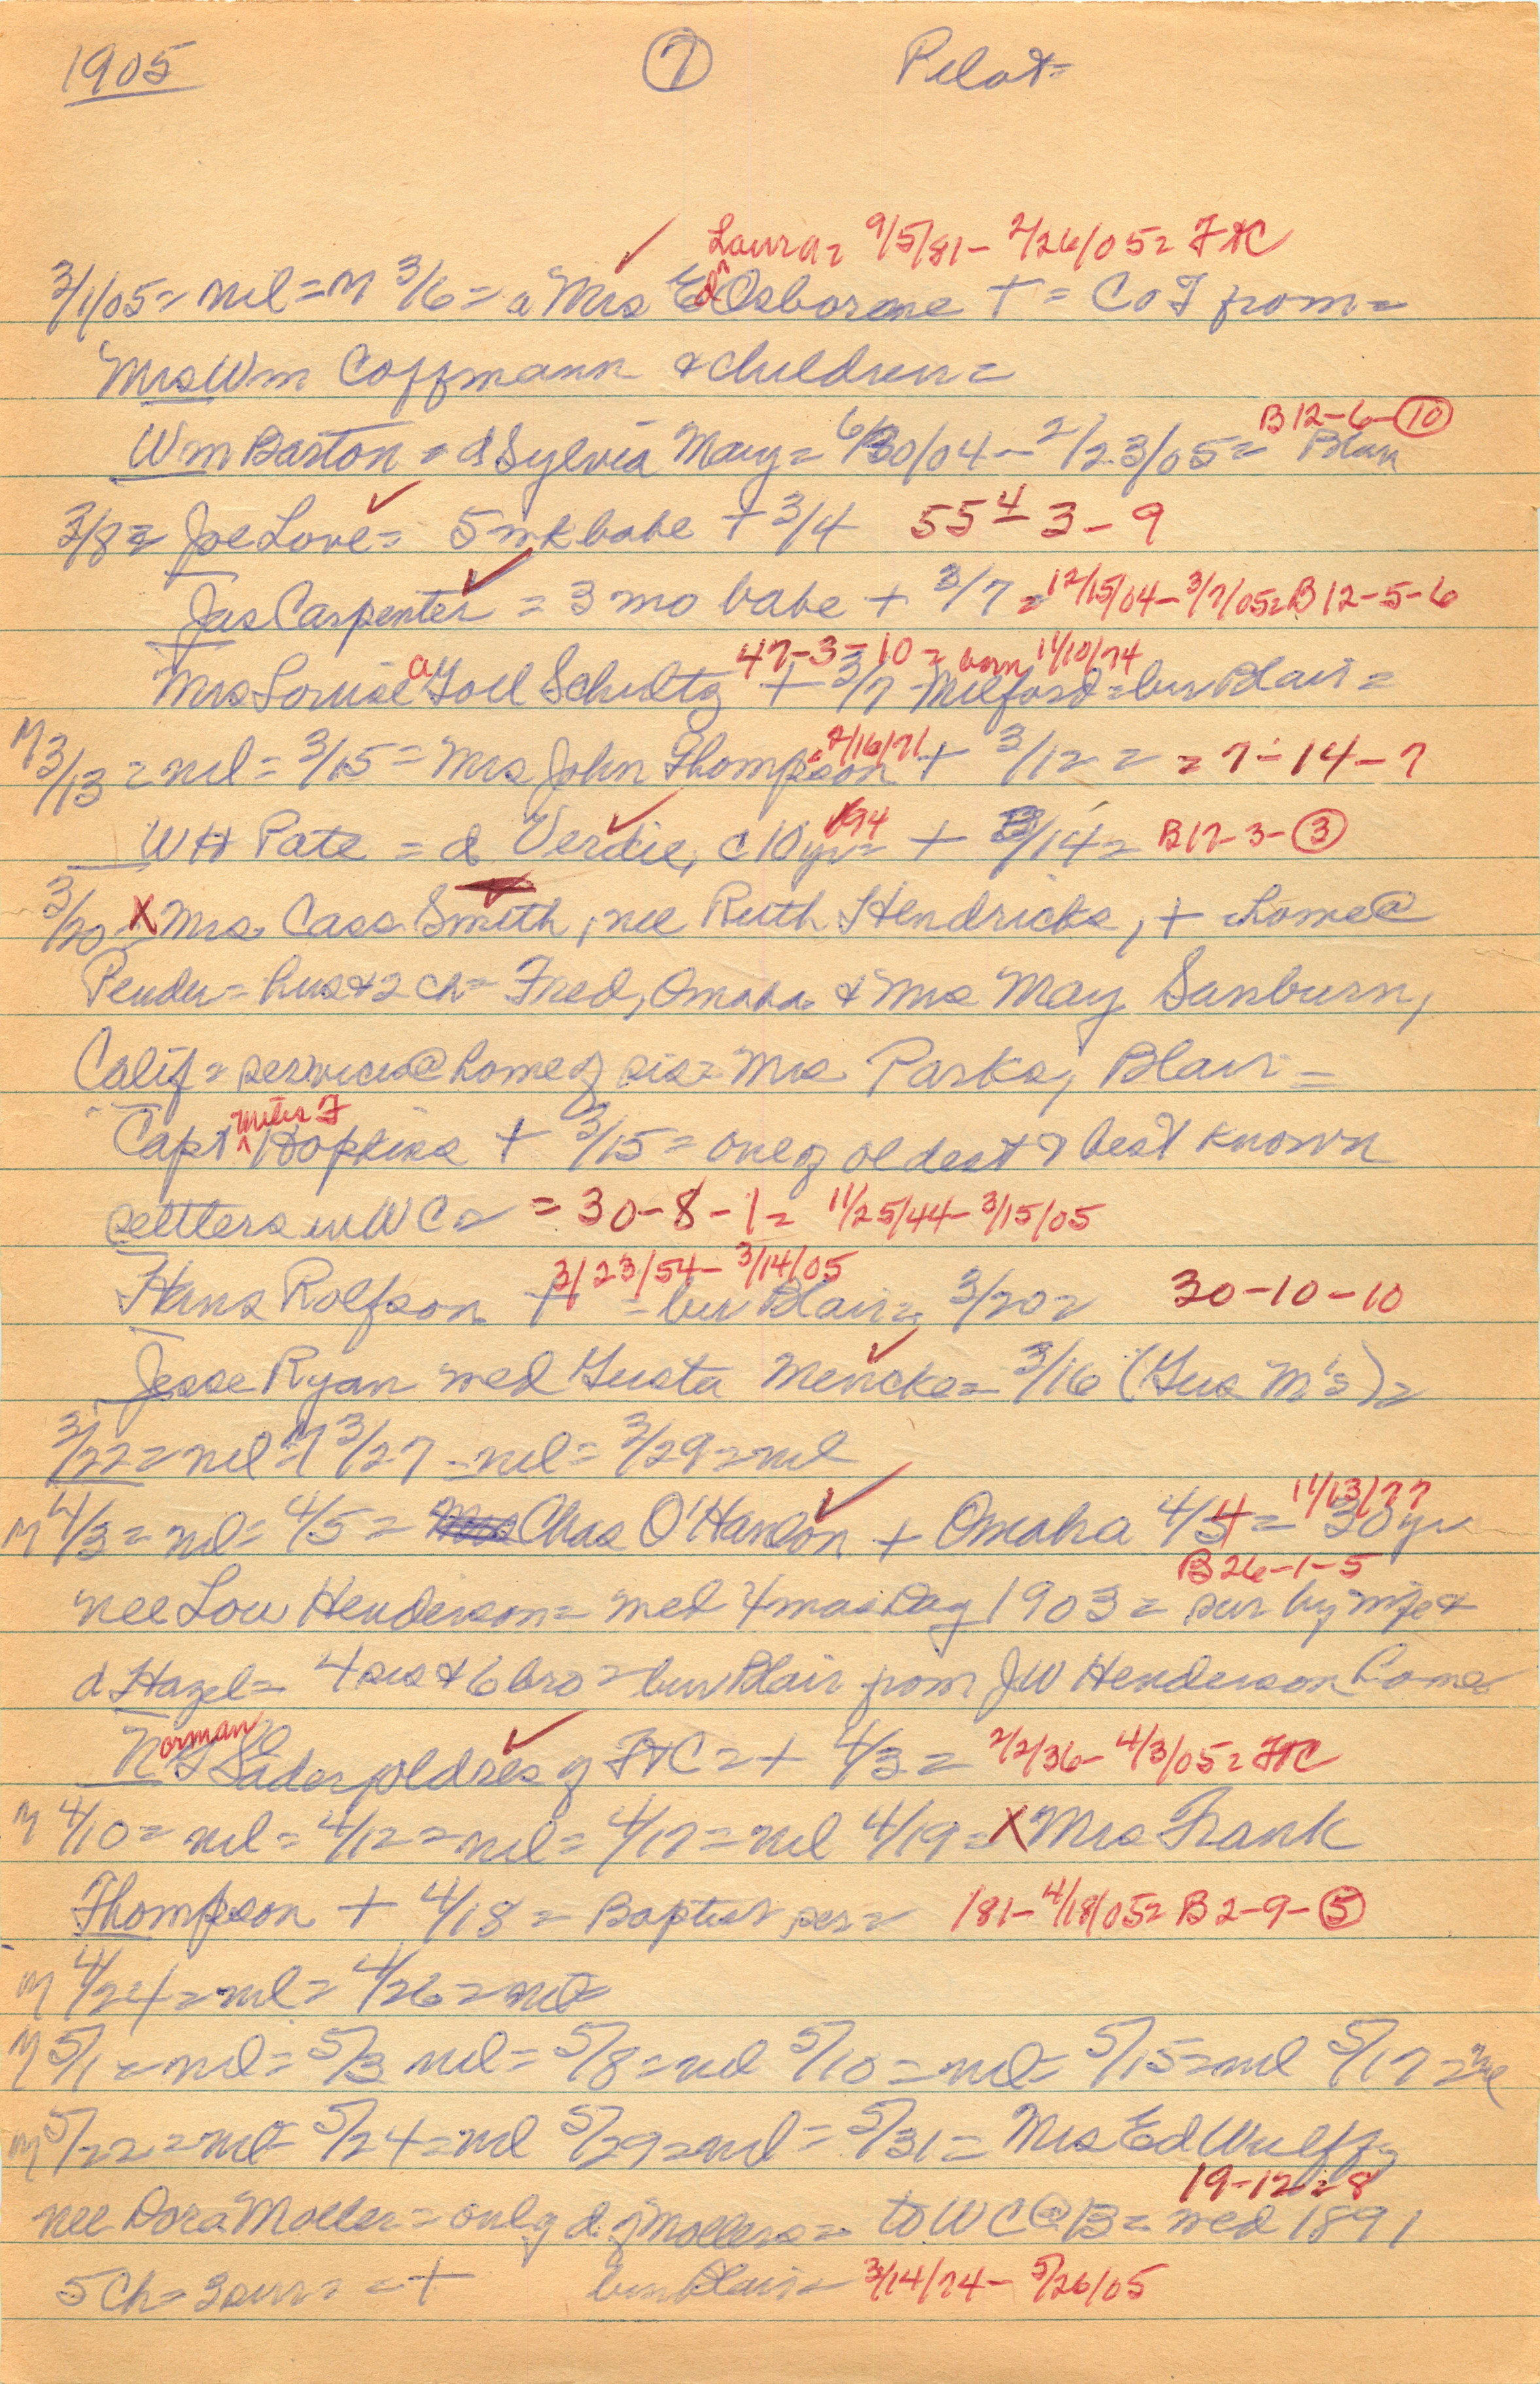 1905 ⑦ Pilot=
Laura= 9/5/81- 2/26/05= FtC
3/1/05= nil= M 3/6= a Mrs Ed Osborne + = CoT from=
Mrs Wm Coffmann & children=
B12-6-⑩
Wm Barton = d Sylvia May= 6/30/04- 2/23/05= Blair
3/8= Joe Love= 5 wk babe + 3/4 55 4 - 3 - 9
Jas Carpenter = 3 mo babe + 3/7 = 12/15/04- 3/7/05= B12-5-6
47-3-10 = born 11/10/74
Mrs Louise a Goll Schultz + 3/7 Milford= bur Blair=
M 3/13 = nil= 3/15= Mrs John Thompson + 3/12 = = 7-14-7
WH Pate = d Verdie, c 10 yr= 94 + 3/14= B17-3-③
3/20= X Mrs Cass Smith, nee Ruth Hendricks, + home@
Pender= hus & 2 ch= Fred, Omaha & Mrs May Sanburn,
Calif= services@home of sis= Mrs Parks, Blair=
Capt Hopkins + 3/15= one of oldest & best known
settlers in WC= = 30-8-1= 11/25/44- 3/15/05
3/23/54- 3/14/05
Hans Rolfson + = bur Blair= 3/20= 30-10-10
Jesse Ryan wed Gusta Mencke= 3/16 (Gus M's)=
3/22= nil= M 3/27 = nil= 3/29= nil
11/13/77
M 4/3= nil= 4/5= Chas O'Hanlon + Omaha 4/4= 30 yr
B26-1-5
nee Lou Henderson= wed Xmas Day 1903= sur by wife &
d Hazel= 4 sis & 6 bro= bur Blair from JW Henderson home
Norman Sader old res of FtC= + 4/3= 2/2/36- 4/3/05= FtC
M 4/10= nil= 4/12= nil= 4/17= nil 4/19= X Mrs Frank
Thompson + 4/18= Baptist ser= 181- 4/18/05= B2-9-⑤
M 4/24= nil= 4/26= nil=
M 5/1= nil= 5/3 nil= 5/8= nil 5/10= nil= 5/15= nil 5/17= nil
M 5/22= nil= 5/24= nil 5/29= nil= 5/31= Mrs Ed Wulff,
19-12=8
nee Dora Moller= only d of Mollers= to WC@13= wed 1891
5 ch= 3 sur= =+ bur Blair= 3/14/74- 5/26/05